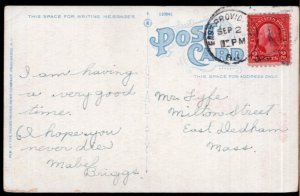 THIS SPACE FOR WRITING MESSAGES
POST CARD
THIS SPACE FOR ADDRESS ONLY
EAST PROVID
SEP 2
PM
R.I.
I am having
a very good
time.
I hope you
never die
Mabel
Briggs.
Mrs. Lyfe
Milton Street
East Dedham
Mass.